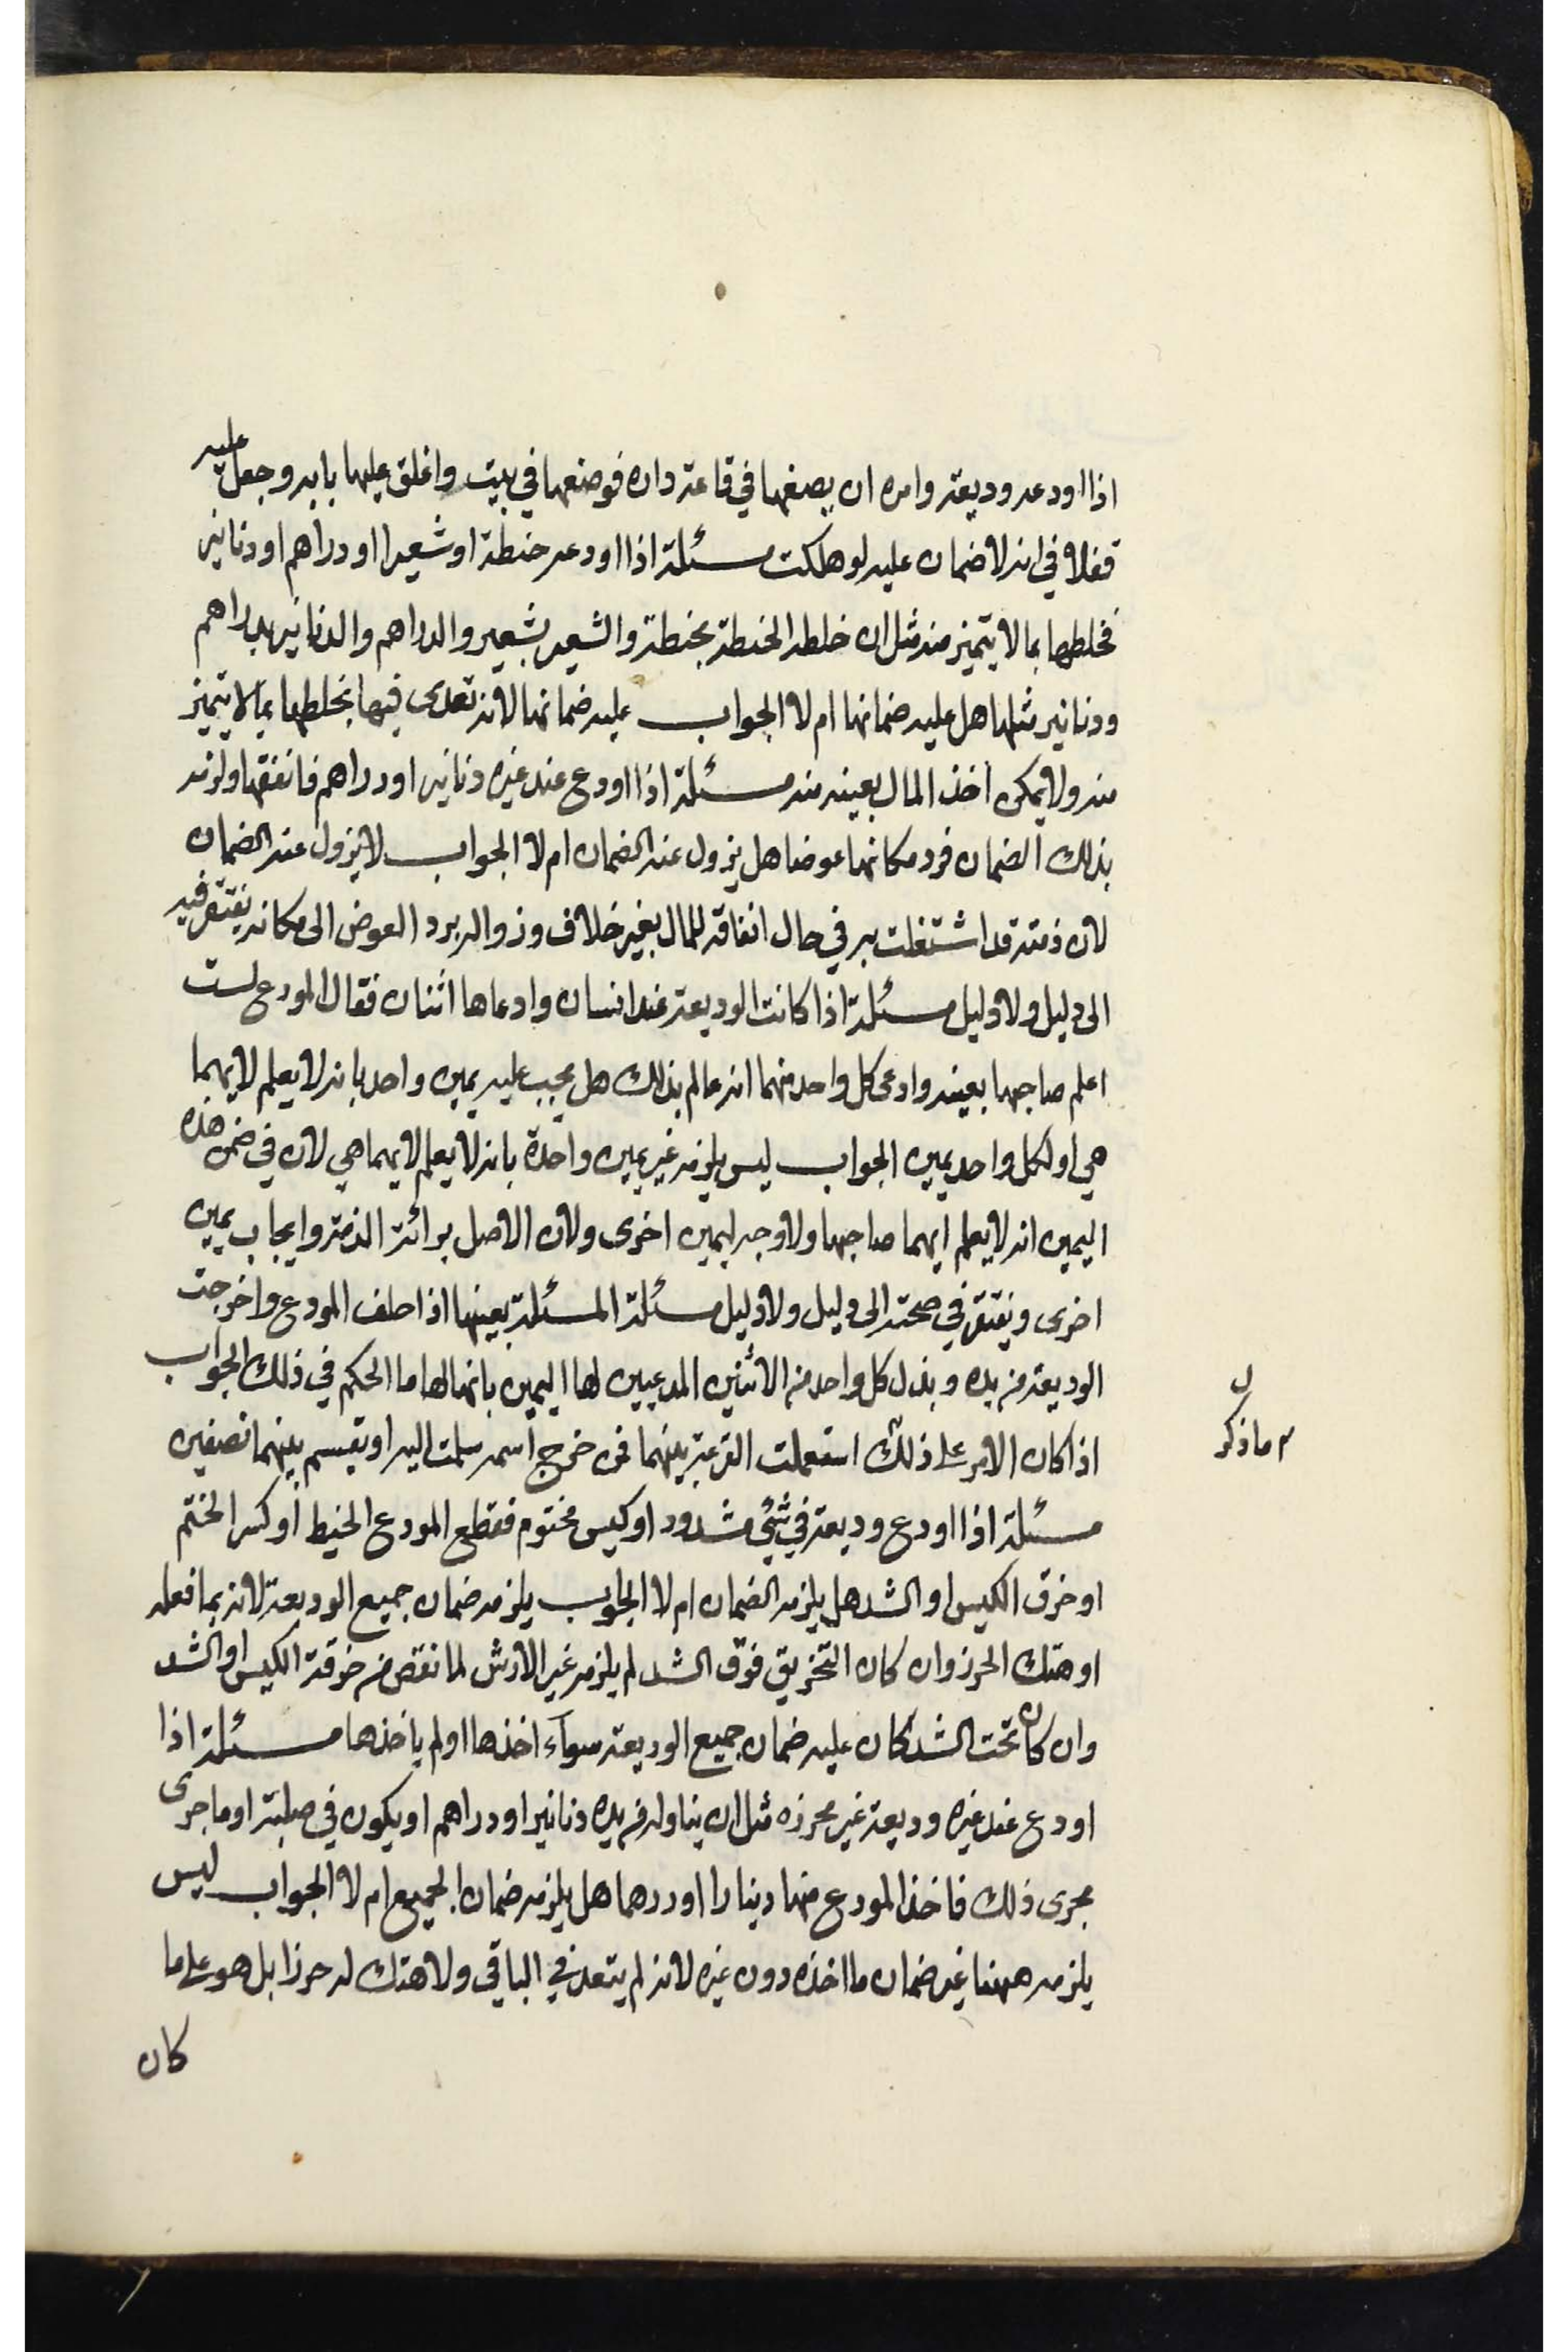 اذا اودعه وديعة وامره ان يصنعها في قاعة داره فوضعها في بيت واغلق عليها بابه وجعل عليه
قفلا في انه لا ضمان عليه لو هلكت مسئلة اذا اودعه حنطة او شعيرا او دراهم او دنانير
فخلطها بما لا يتميز منه مثل ان خلط الحنطة بحنطة والشعير بشعير والدراهم والدنانير بدراهم
ودنانير مثلها هل عليه ضمانها ام لا الجواب عليه ضمانها لانه تعدى فيها بخلطها بما لا يتميز
منه ولا يمكن اخذ المال بعينه منه مسئلة اذا اودع عند غيره دنانير او دراهم فانفقها ولزمه
بذلك الضمان فرد مكانها عوضا هل يزول عنه الضمان ام لا الجواب لا يزول عنه الضمان
لان ذمته قد اشتغلت به في حال انفاقه للمال بغير خلاف وزواله برد العوض الى مكانه يفتقر فيه
الى دليل ولا دليل مسئلة اذا كانت الوديعة عند انسان وادعاها اثنان فقال المودع لست
اعلم صاحبها بعينه وادعى كل واحد منهما انه عالم بذلك هل يجب عليه يمين واحد بانه لا يعلم لايهما
هي او لكل واحد يمين الجواب ليس يلزمه غير يمين واحدة بانه لا يعلم لايهما هي لان في ضمن هذه
اليمين انه لا يعلم ايهما صاحبها ولا وجه ليمين اخرى ولان الاصل برائة الذمة وايجاب يمين
اخرى ونفتقر في صحته الى دليل ولا دليل مسئلة المسئلة بعينها اذا حلف المودع واخرجت
الوديعة من يده وبذل كل واحد من الاثنين المدعيين لها اليمين بانها لها ما الحكم في ذلك الجواب
اذا كان الامر على ذلك استعملت القرعة بينهما فمن خرج اسمه سلمت اليه او تقسم بينهما نصفين
ما ذكر
مسئلة اذا اودع وديعة في شئ مشدود او كيس مختوم فقطع المودع الخيط او كسر الختم
او خرق الكيس او الشد هل يلزمه الضمان ام لا الجواب يلزمه ضمان جميع الوديعة لانه بما فعله
او هتك الحرز وان كان التخريق فوق الشد لم يلزمه غير الارش لما نقص من خرقة الكيس او الشد
وان كان تحت الشد كان عليه ضمان جميع الوديعة سوآء اخذها او لم ياخذها مسئلة اذا
اودع عند غيره وديعة غير محرزه مثل ان يناوله من يده دنانير او دراهم او يكون في صلبته او ما جرى
مجرى ذلك فاخذ المودع منها دينارا او درهما هل يلزمه ضمان الجميع ام لا الجواب ليس
يلزمه ههنا غير ضمان ما اخذه دون غيره لانه لم يتعد في الباقي ولا هتك له حرزا بل هو على ما
كان